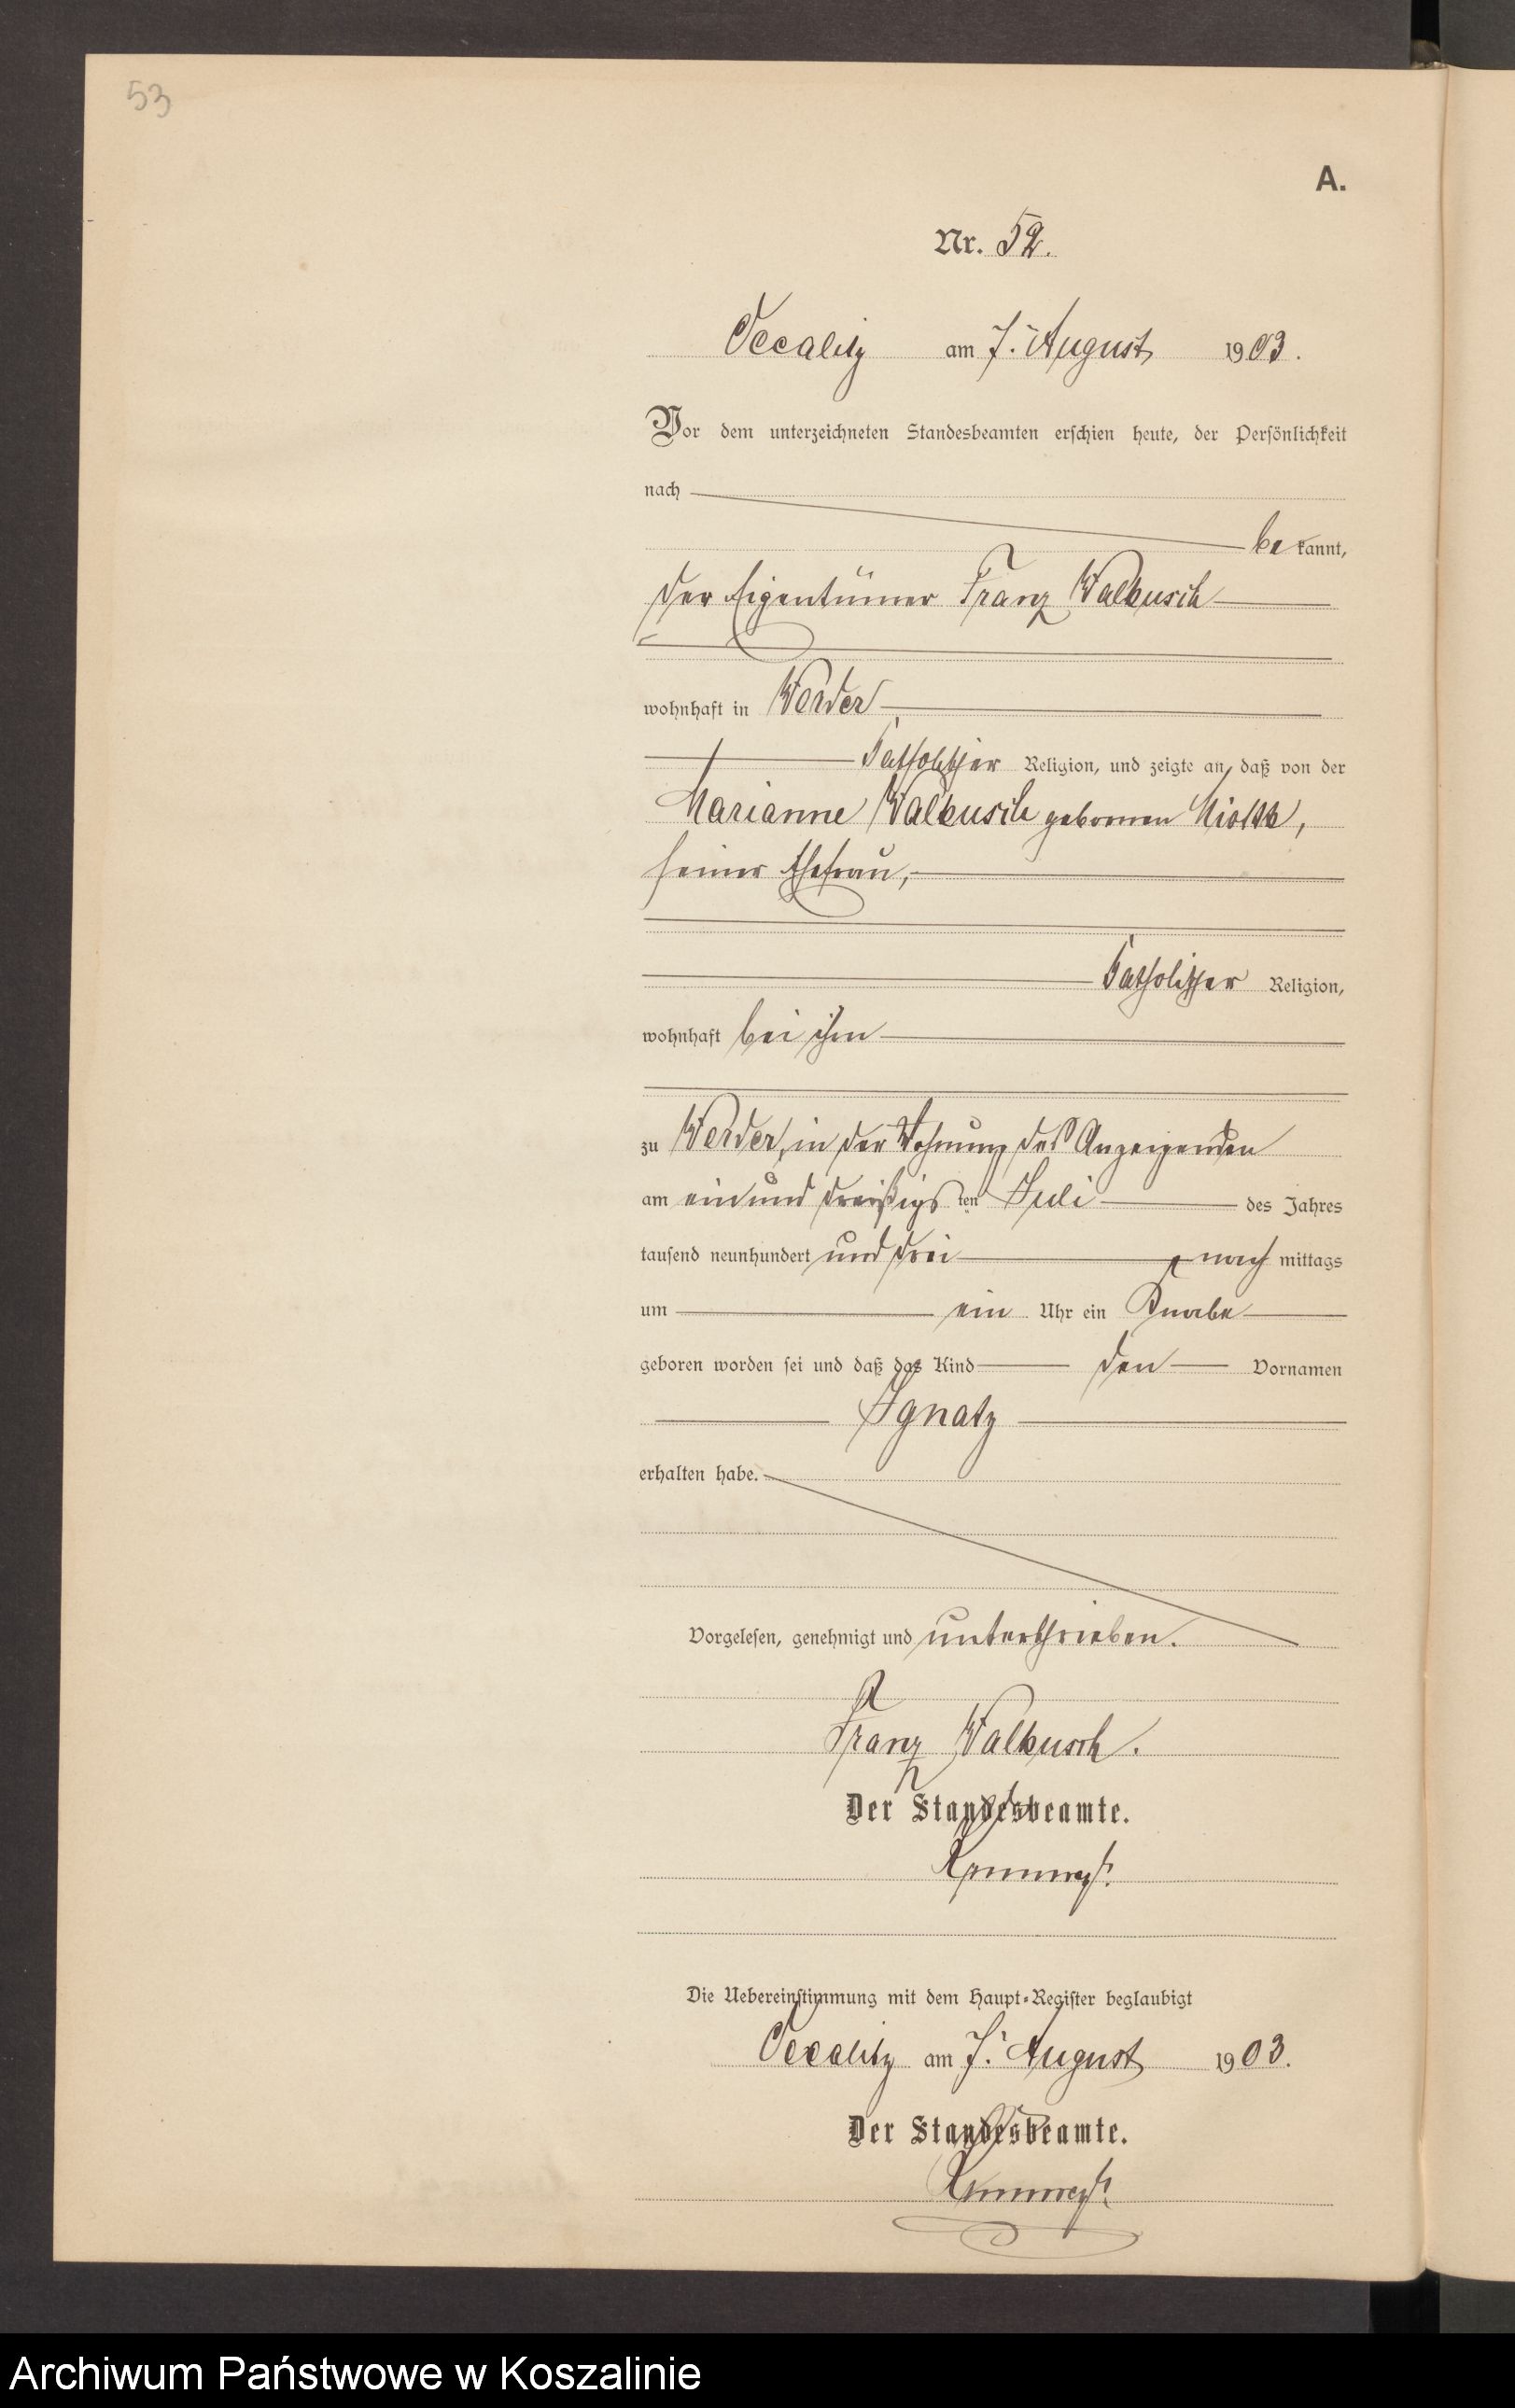 53
A.
Nr. 52.
Oecalitz am 7. August 1903.
Vor dem unterzeichneten Standesbeamten erschien heute, der Persönlichkeit
nach
be kannt,
der Eigentümer Franz Walkusch
wohnhaft in Werder
katholischer Religion, und zeigte an, daß von der
Marianne Walkusch geborenen Miotk,
seiner Ehefrau,
katholischer Religion,
wohnhaft bei ihm
zu Werder, in der Wohnung des Anzeigenden
am ein und dreißigs ten Juli des Jahres
tausend neunhundert und drei nach mittags
um ein Uhr ein Knabe
geboren worden sei und daß das Kind den Vornamen
Ignatz
erhalten habe.
Vorgelesen, genehmigt und unterschrieben.
Franz Walkusch.
Der Standesbeamte.
Die Uebereinstimmung mit dem Haupt-Register beglaubigt
Oecalitz am 7. August 1903.
Der Standesbeamte.
Archiwum Państwowe w Koszalinie